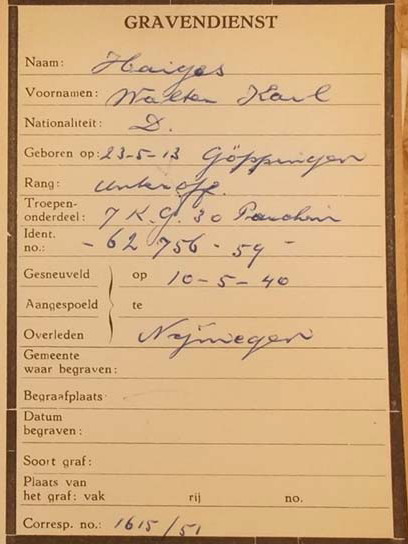 GRAVENDIENST
Naam: Haigos
Voornamen: Walter Karl
Nationaliteit: D.
Geboren op: 23-5-13 Göppingen
Rang: Unteroff.
Troepen-
onderdeel: 7 K.G. 30 Parchim
Ident.
no.: - 62 756 - 59 -
Gesneuveld } op 10-5-40
Aangespoeld } te
Overleden } Nijmegen
Gemeente
waar begraven:
Begraafplaats
Datum
begraven:
Soort graf:
Plaats van
het graf: vak rij no.
Corresp. no.: 1615/51